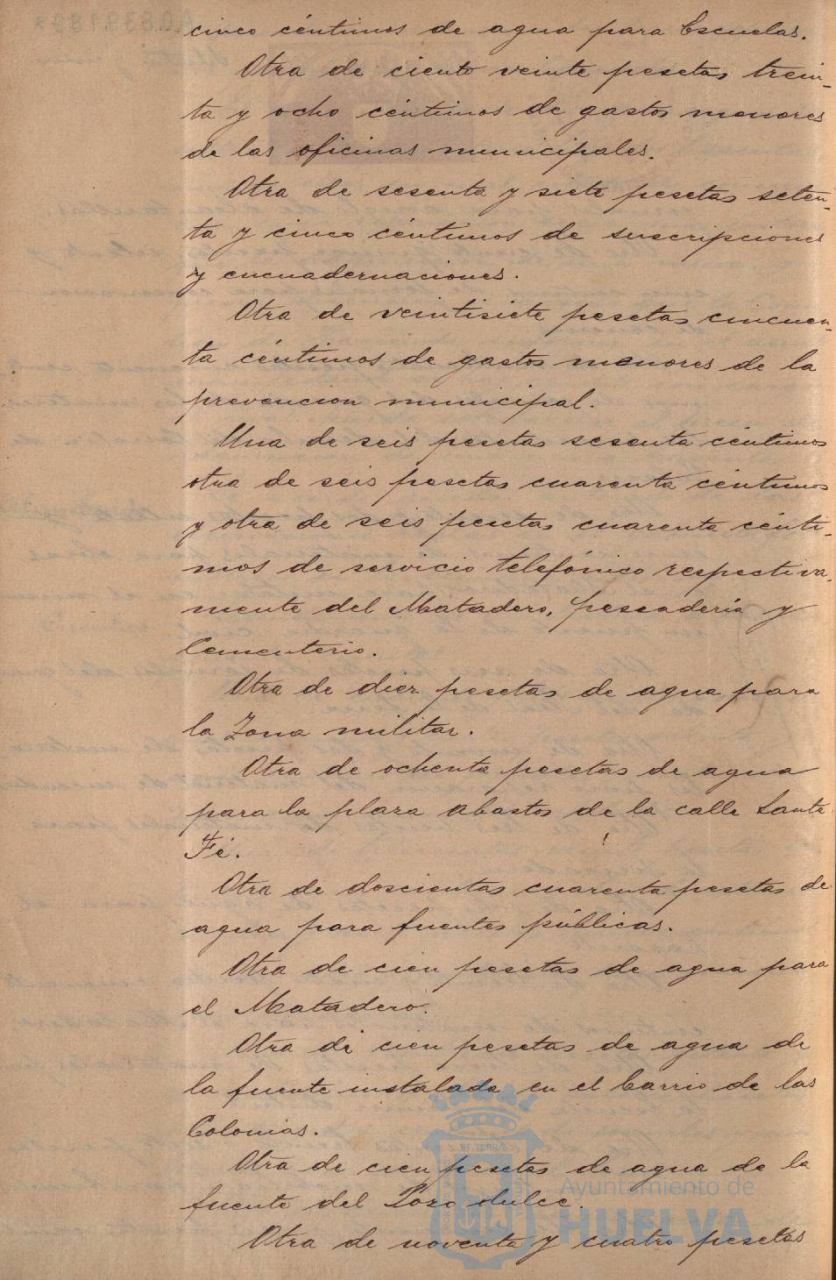 cinco céntimos de agua para Escuelas.
Otra de ciento veinte pesetas trein-
ta y ocho céntimos de gastos menores
de las oficinas municipales.
Otra de sesenta y siete pesetas seten-
ta y cinco céntimos de suscripciones
y encuadernaciones.
Otra de veintisiete pesetas cincuen-
ta céntimos de gastos menores de la
prevencion municipal.
Una de seis pesetas sesenta céntimos
otra de seis pesetas cuarenta céntimos
y otra de seis pesetas cuarenta cénti-
mos de servicio telefónico respectiva-
mente del Matadero, pescaderia y
Cementerio.
Otra de diez pesetas de agua para
la Zona militar.
Otra de ochenta pesetas de agua
para la plaza abastos de la calle Santa
Fé.
Otra de doscientas cuarenta pesetas de
agua para fuentes públicas.
Otra de cien pesetas de agua para
el Matadero.
Otra de cien pesetas de agua de
la fuente instalada en el barrio de las
Colonias.
Otra de cien pesetas de agua de la
fuente del Pozo dulce.
Otra de noventa y cuatro pesetas
Ayuntamiento de
HUELVA